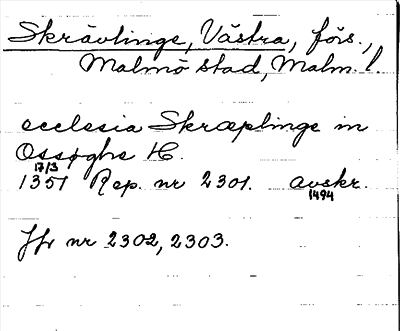 Skrävlinge, Västra, förs.,
Malmö stad, Malm. l.
ecclesia Skræplinge in
Ossøghs H.
17/3
1351 Rep. nr 2301. avskr.
1494
Jfr nr 2302, 2303.